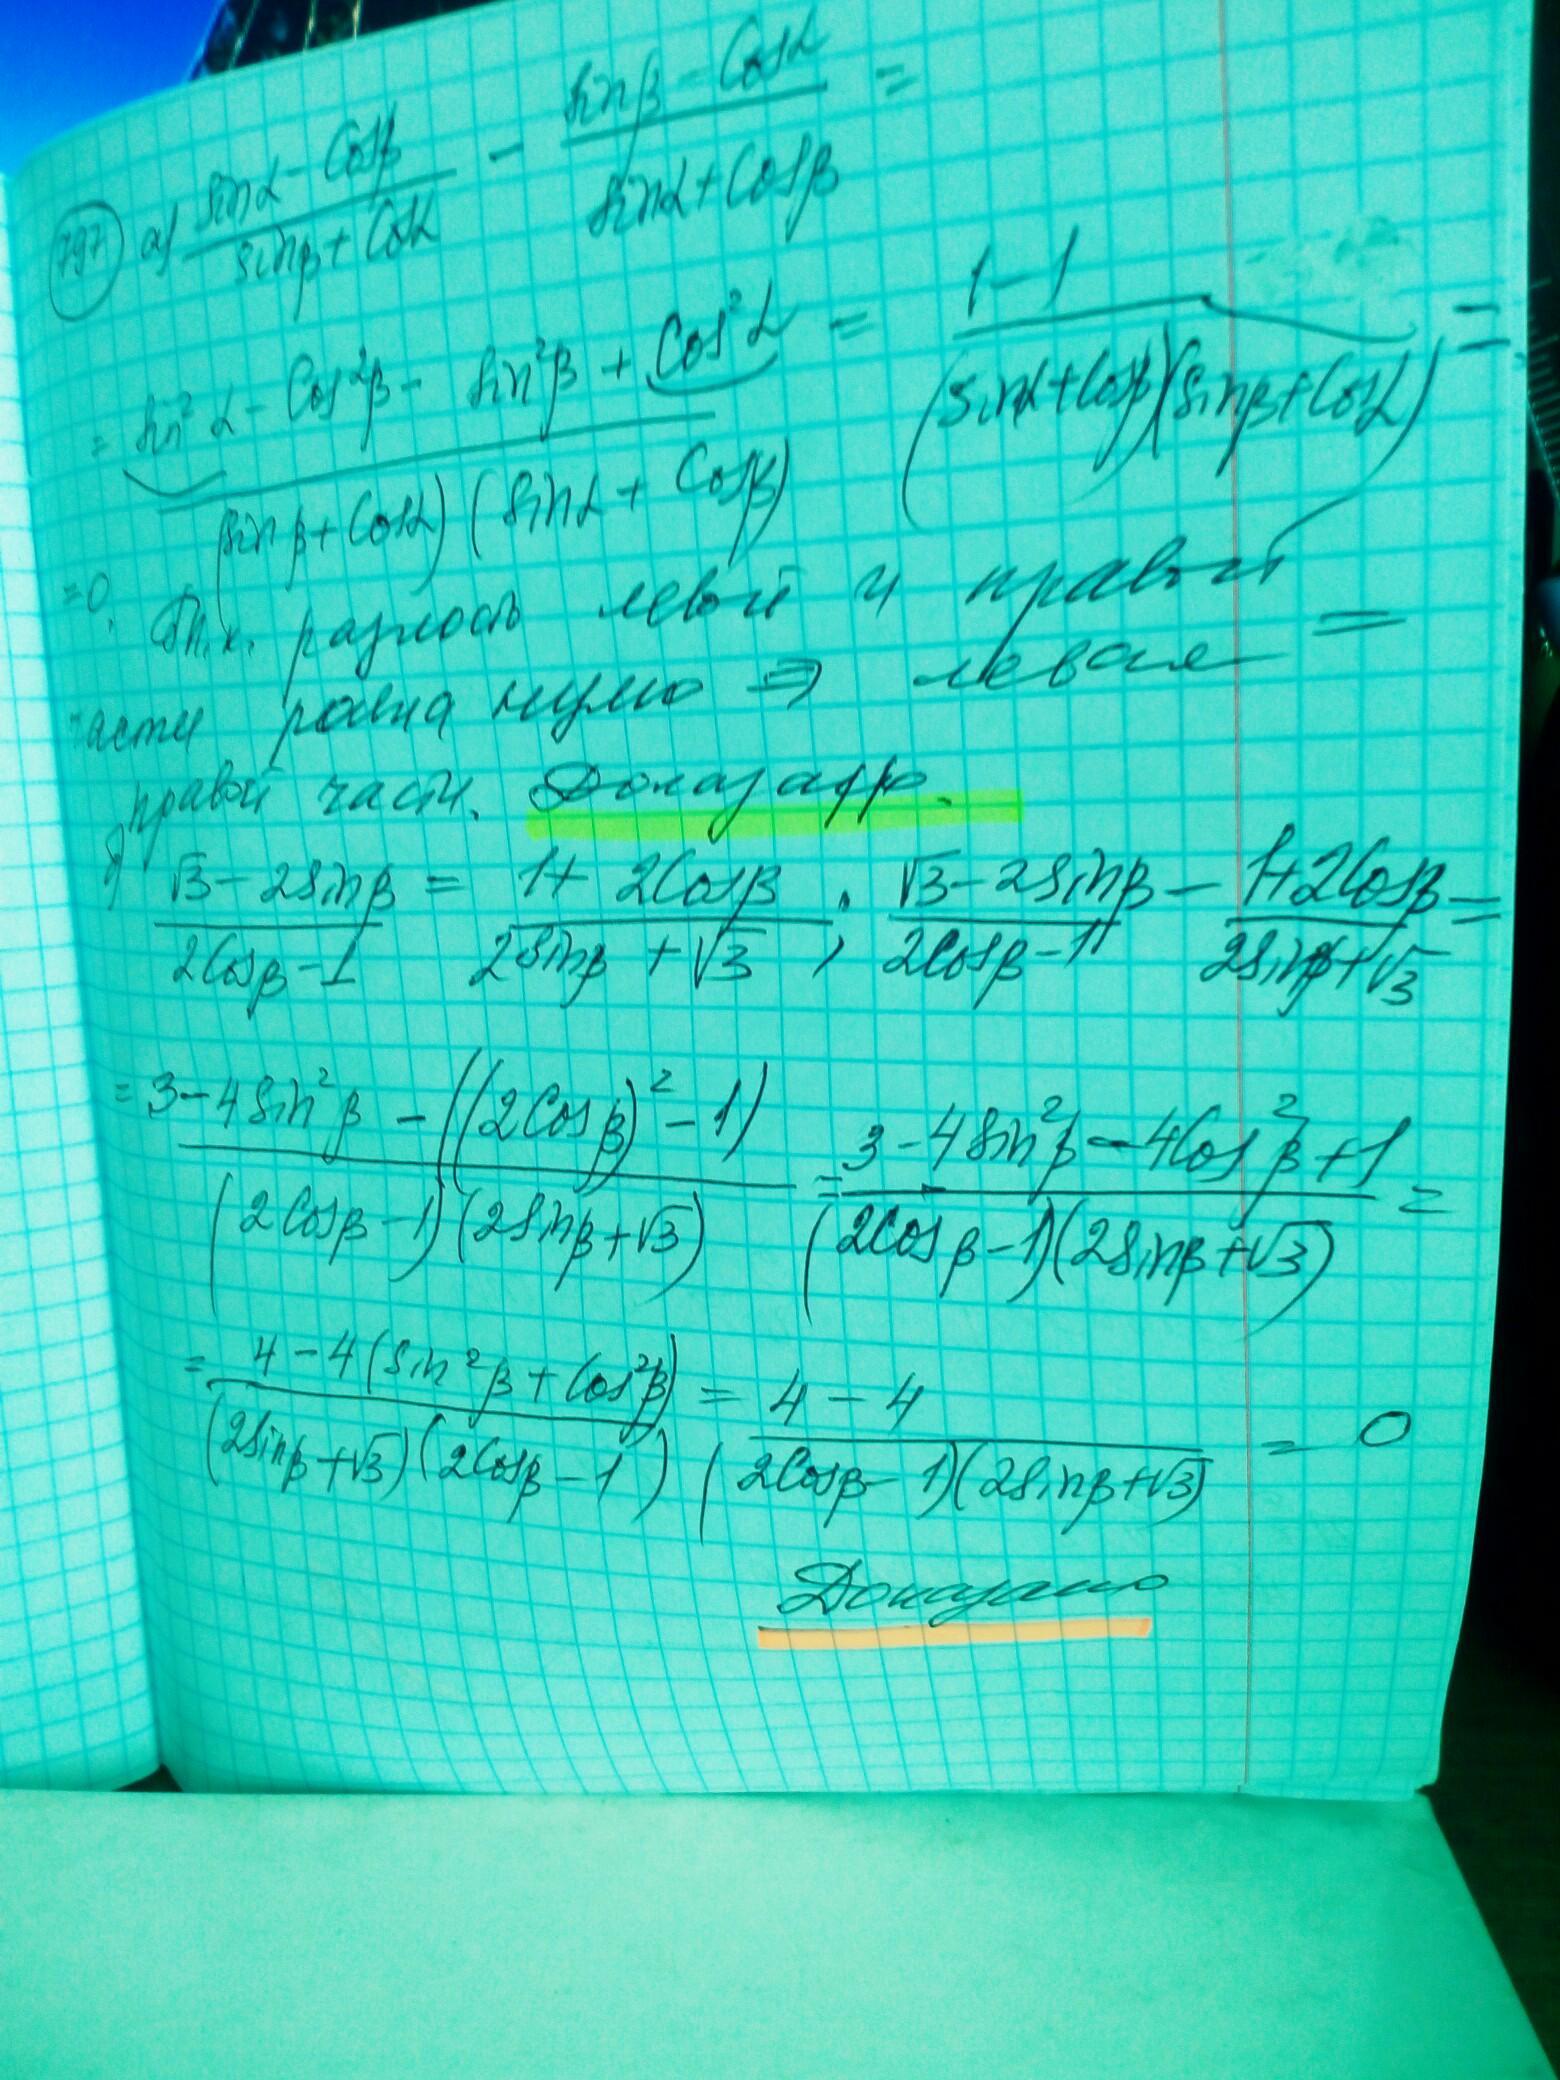 797 а) (sinα - Cosβ)/(sinβ + Cosα) - (sinβ - Cosα)/(sinα + Cosβ) =
= (sin²α - Cos²β - sin²β + Cos²α)/((sinβ + Cosα)(sinα + Cosβ)) = (1-1)/((sinα + Cosβ)(sinβ + Cosα)) =
= 0. Т.к. разность левой и правой
части равна нулю ⇒ левая =
правой части. Доказано.
б) (√3 - 2sinβ)/(2Cosβ - 1) = (1 + 2Cosβ)/(2sinβ + √3) ; (√3 - 2sinβ)/(2Cosβ - 1) - (1 + 2Cosβ)/(2sinβ + √3) =
= (3 - 4sin²β - ((2Cosβ)² - 1))/((2Cosβ - 1)(2sinβ + √3)) = (3 - 4sin²β - 4Cos²β + 1)/((2Cosβ - 1)(2sinβ + √3)) =
= (4 - 4(sin²β + Cos²β))/((2sinβ + √3)(2Cosβ - 1)) = (4 - 4)/((2Cosβ - 1)(2sinβ + √3)) = 0
Доказано